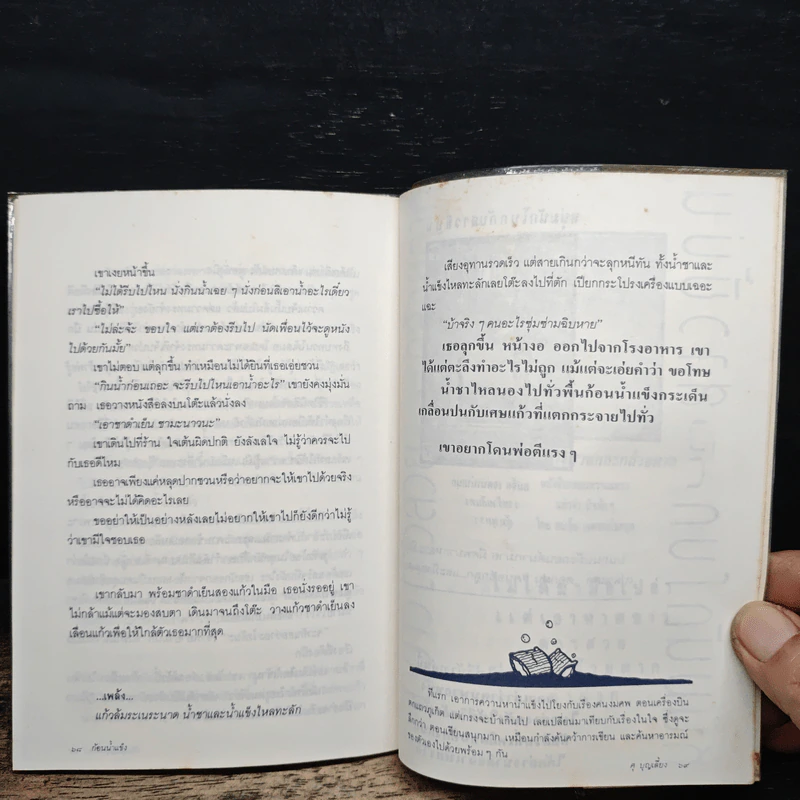 เขาเงยหน้าขึ้น
"ไม่ได้รีบไปไหน นั่งกินน้ำเฉย ๆ นั่งก่อนสิเอาน้ำอะไรเดี๋ยว
เราไปซื้อให้"
"ไม่ล่ะจ้ะ ขอบใจ แต่เราต้องรีบไป นัดเพื่อนไว้จะดูหนัง
ไปด้วยกันมั้ย"
เขาไม่ตอบ แต่ลุกขึ้น ทำเหมือนไม่ได้ยินที่เธอเอ่ยชวน
"กินน้ำก่อนเถอะ จะรีบไปไหนเอาน้ำอะไร" เขายังคงมุ่งมั่น
ถาม เธอวางหนังสือลงบนโต๊ะแล้วนั่งลง
"เอาชาดำเย็น ชามะนาวนะ"
เขาเดินไปที่ร้าน ใจเต้นผิดปกติ ยังลังเลใจ ไม่รู้ว่าควรจะไป
กับเธอดีไหม
เธออาจเพียงแค่หลุดปากชวนหรือว่าอยากจะให้เขาไปด้วยจริง
หรืออาจจะไม่ได้คิดอะไรเลย
ขออย่าให้เป็นอย่างหลังเลยไม่อยากให้เขาไปก็ยังดีกว่าไม่รู้
ว่าเขามีใจชอบเธอ
เขากลับมา พร้อมชาดำเย็นสองแก้วในมือ เธอนั่งรออยู่ เขา
ไม่กล้าแม้แต่จะมองสบตา เดินมาจนถึงโต๊ะ วางแก้วชาดำเย็นลง
เลื่อนแก้วเพื่อให้ใกล้ตัวเธอมากที่สุด
...เพล้ง...
แก้วล้มระเนระนาด น้ำชาและน้ำแข็งไหลทะลัก
๖๘ ก้อนน้ำแข็ง
เสียงอุทานรวดเร็ว แต่สายเกินกว่าจะลุกหนีทัน ทั้งน้ำชาและ
น้ำแข็งไหลทะลักเลยโต๊ะลงไปที่ตัก เปียกกระโปรงเครื่องแบบเฉอะ
แฉะ
"บ้าจริง ๆ คนอะไรซุ่มซ่ามฉิบหาย"
เธอลุกขึ้น หน้างอ ออกไปจากโรงอาหาร เขา
ได้แต่ตะลึงทำอะไรไม่ถูก แม้แต่จะเอ่ยคำว่า ขอโทษ
น้ำชาไหลนองไปทั่วพื้นก้อนน้ำแข็งกระเด็น
เกลื่อนปนกับเศษแก้วที่แตกกระจายไปทั่ว
เขาอยากโดนพ่อตีแรง ๆ
ทีแรก เอาการควานหาน้ำแข็งไปโยงกับเรื่องคนงมศพ ตอนเครื่องบิน
ตกแถวภูเก็ต แต่เกรงจะบ้าเกินไป เลยเปลี่ยนมาเทียบกับเรื่องในใจ ซึ่งดูจะ
ลึกกว่า ตอนเขียนสนุกมาก เหมือนกำลังค้นคว้าการเขียน และค้นหาอารมณ์
ของตัวเองไปด้วยพร้อม ๆ กัน
ศุ บุญเลี้ยง ๖๙